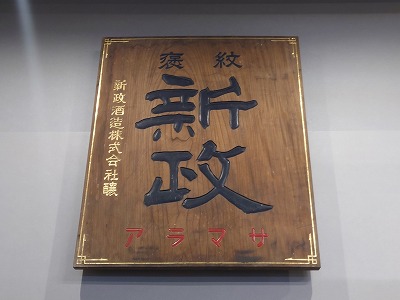 褒紋
新政
新政酒造株式会社醸
アラマサ